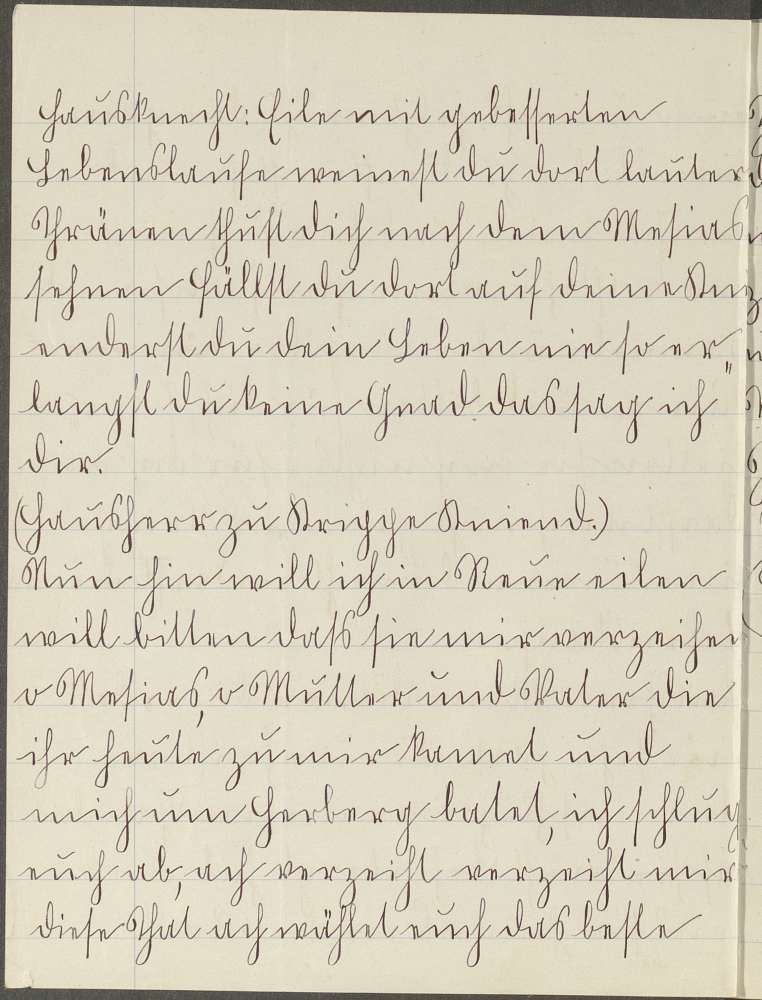 Hausknecht: Eile mit gebesserten
Lebenslaufe weinest du dort lauter
Thränen thust dich nach dem Mesias
sehnen fällst du dort auf deine Knie
enderst du dein Leben nie so er„
langst du keine Gnad das sag ich
dir.
(Hausherr zu Krippe Kniend.)
Nun hin will ich in Reue eilen
will bitten daß sie mir verzeihen
o Mesias, o Mutter und Vater die
ihr heute zu mir kamet und
mich um Herberg batet, ich schlug
euch ab, ach verzeiht verzeiht mir
diese That ach wählet euch das beste